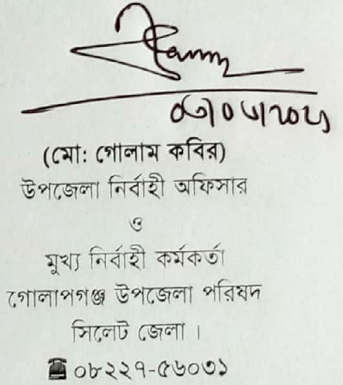 (মো: গোলাম কবির)
উপজেলা নির্বাহী অফিসার
ও
মুখ্য নির্বাহী কর্মকর্তা
গোলাপগঞ্জ উপজেলা পরিষদ
সিলেট জেলা ।
☎ ০৮২২৭-৫৬০৩১